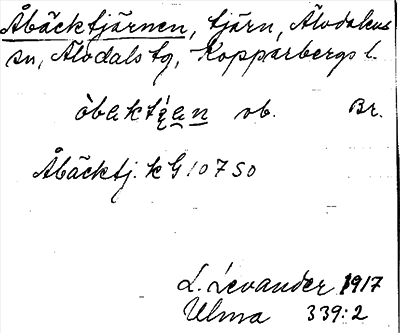 Åbäcktjärnen, tjärn, Älvdalens
sn, Älvdals tg, Kopparbergs l.
òbaktįan ob. Br.
Åbäcktj. k G 107 SO
L. Levander 1917
Ulma 339:2